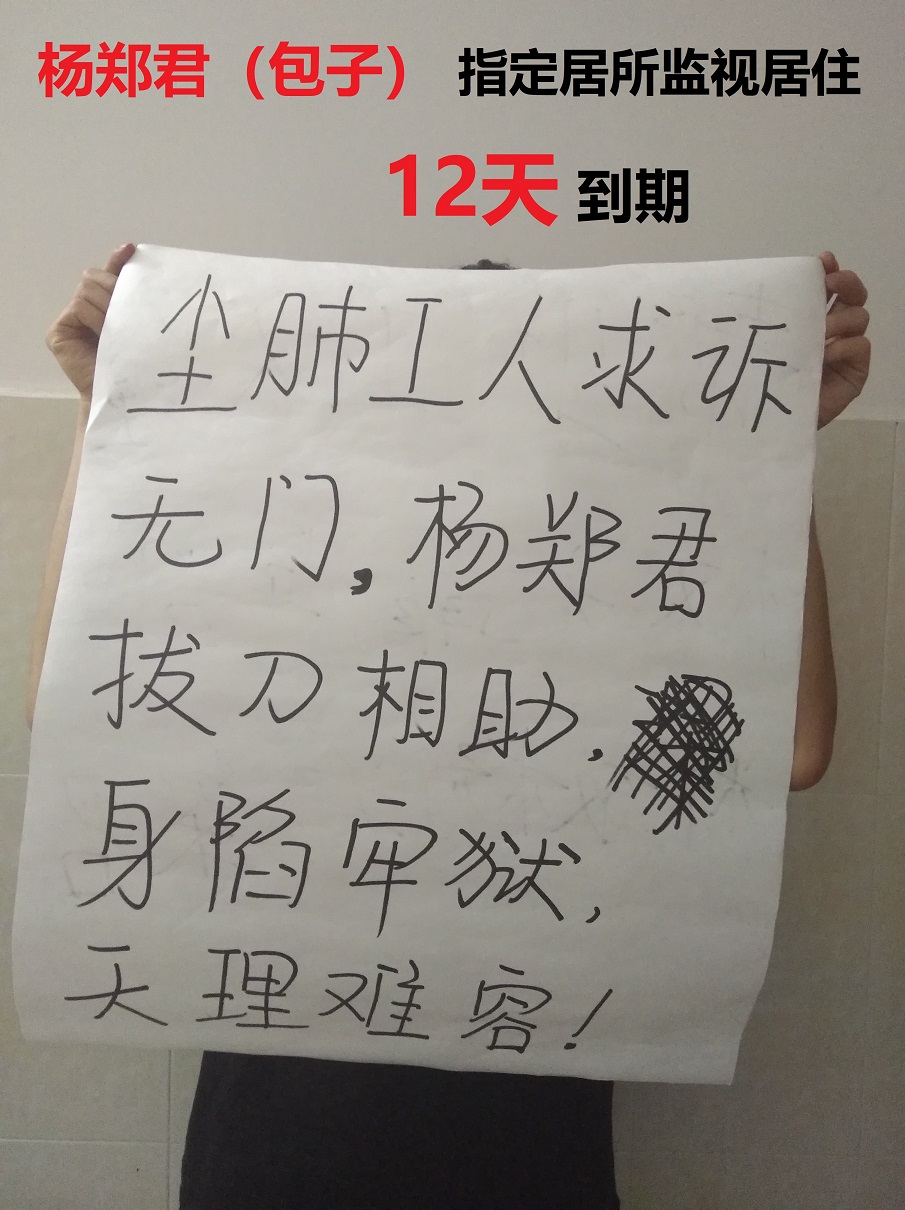 杨郑君（包子） 指定居所监视居住
12天 到期
尘肺工人求诉
无门，杨郑君
拔刀相助，
身陷牢狱，
天理难客！